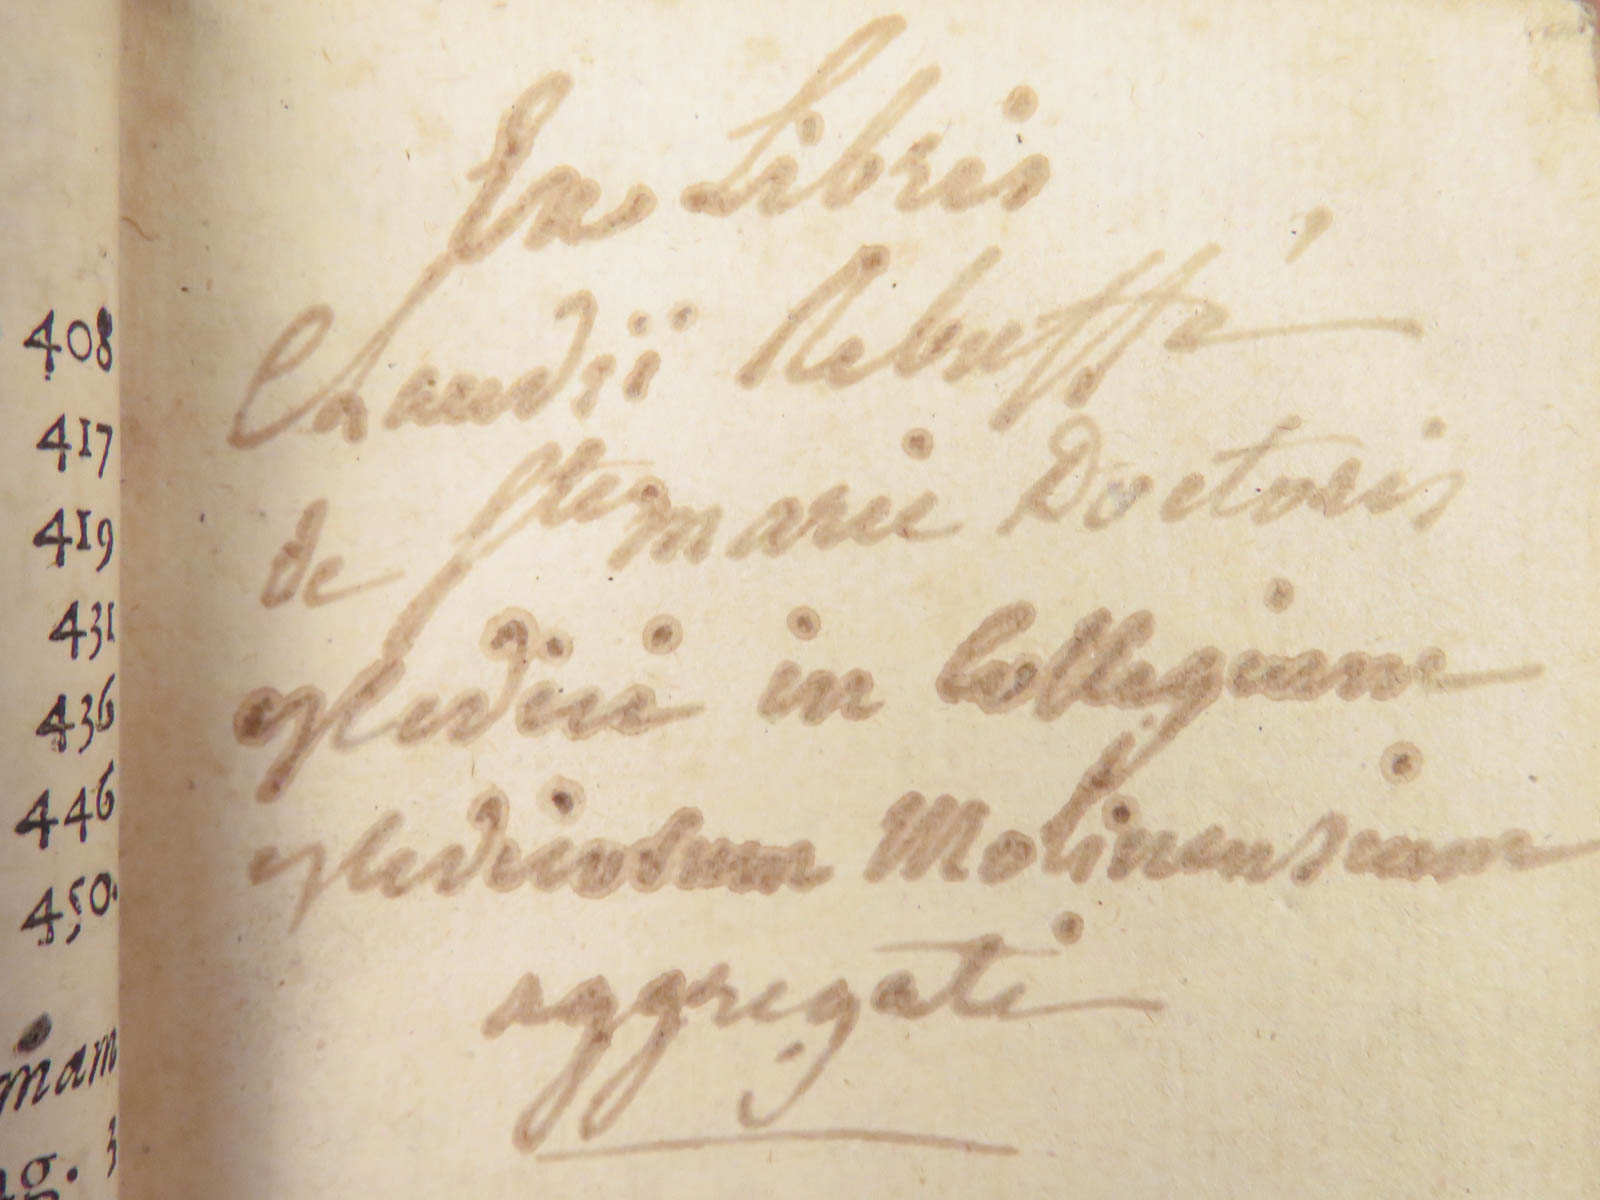 408
417
419
431
436
446
450.
mam
ag. 3
Ex Libris
Claudii Rebuffé
de Ste marie Doctoris
Medici in Collegium
Medicorum Molinensium
aggregati